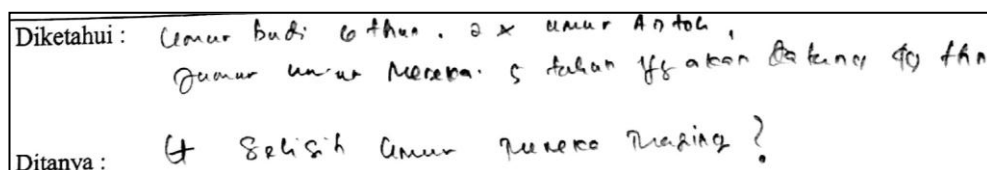 Diketahui : Umur budi 6 thun. 2 x umur Antoh,
Jumur umur Mereka. 5 tahun yg akan datang 49 thn
Ditanya : Selisih Umur Mereka Maging ?